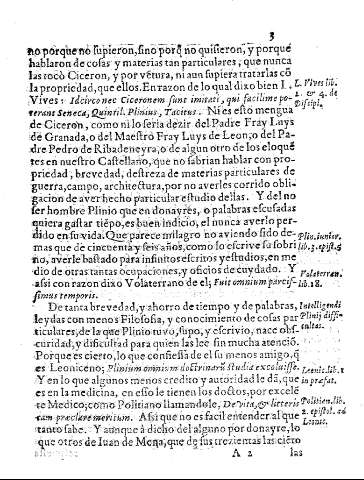 3
no porque no supieron, sino porq̃ no quisieron, y porque
hablaron de cosas y materias tan particulares, que nunca
las tocò Ciceron, y por vẽtura, ni aun supiera tratarlas cõ
la propriedad, que ellos. En razon de lo qual dixo bien I.
Vives: Idcirco nec Ciceronem sunt imitati, qui facilime po-
terant Seneca, Quintil. Plinius, Tacitus. Ni es esto mengua
de Ciceron, como ni lo seria dezir del Padre Fray Luys
de Granada, o del Maestro Fray Luys de Leon; o del Pa-
dre Pedro de Ribadeneyra; o de algun otro de los eloquẽ
tes en nuestro Castellano, que no sabrian hablar con pro-
priedad, brevedad, destreza de materias particulares de
guerra, campo, architectura, por no averles corrido obli-
gacion de aver hecho particular estudio dellas. Y del no
ser hombre Plinio que en donayres, o palabras escusadas
quiera gastar tiẽpo, es buen indicio, el nunca averlo per-
dido en su vida. Que parece milagro no aviendo sido de-
mas que de cincuenta y seis años, como lo escrive su sobri
no, averle bastado para infinitos escritos y estudios, en me
dio de otras tantas ocupaciones, y oficios de cuydado. Y
assi con razon dixo Volaterrano de el; Fuit omnium parcis-
simus temporis.
De tanta brevedad, y ahorro de tiempo y de palabras,
leydas con menos Filosofia, y conocimiento de cosas par
ticulares, de la que Plinio tuvo, supo, y escrivio, nace obs-
curidad, y dificultad para quien las lee sin mucha atenciõ.
Porque es cierto, lo que confiessa de el su menos amigo, q̃
es Leoniceno; Plinium omnium doctrinarũ studia excoluisse.
Y en lo que algunos menos credito y autoridad le dã, que
es en la medicina, en esso le tienen los doctos, por excelẽ
te Medico; como Politiano llamandole, De vita, & litteris
tam præclare meritum. Assi que no es facil entender al que
tanto sabe. Y aunque à dicho del alguno por donayre, lo
que otros de Iuan de Mena, que de sus trezientas las ciẽto
A 2 las
L. Vives lib.
2. & 4. de
Discipl.
Plio. iunior.
lib. 3. epist. 5
Volaterran.
lib. 18.
Intelligendi
Plinij diffi-
cultas.
Leonic. lib. 1
in præfat.
Politian. lib.
2. epistol. ad
Leonic.